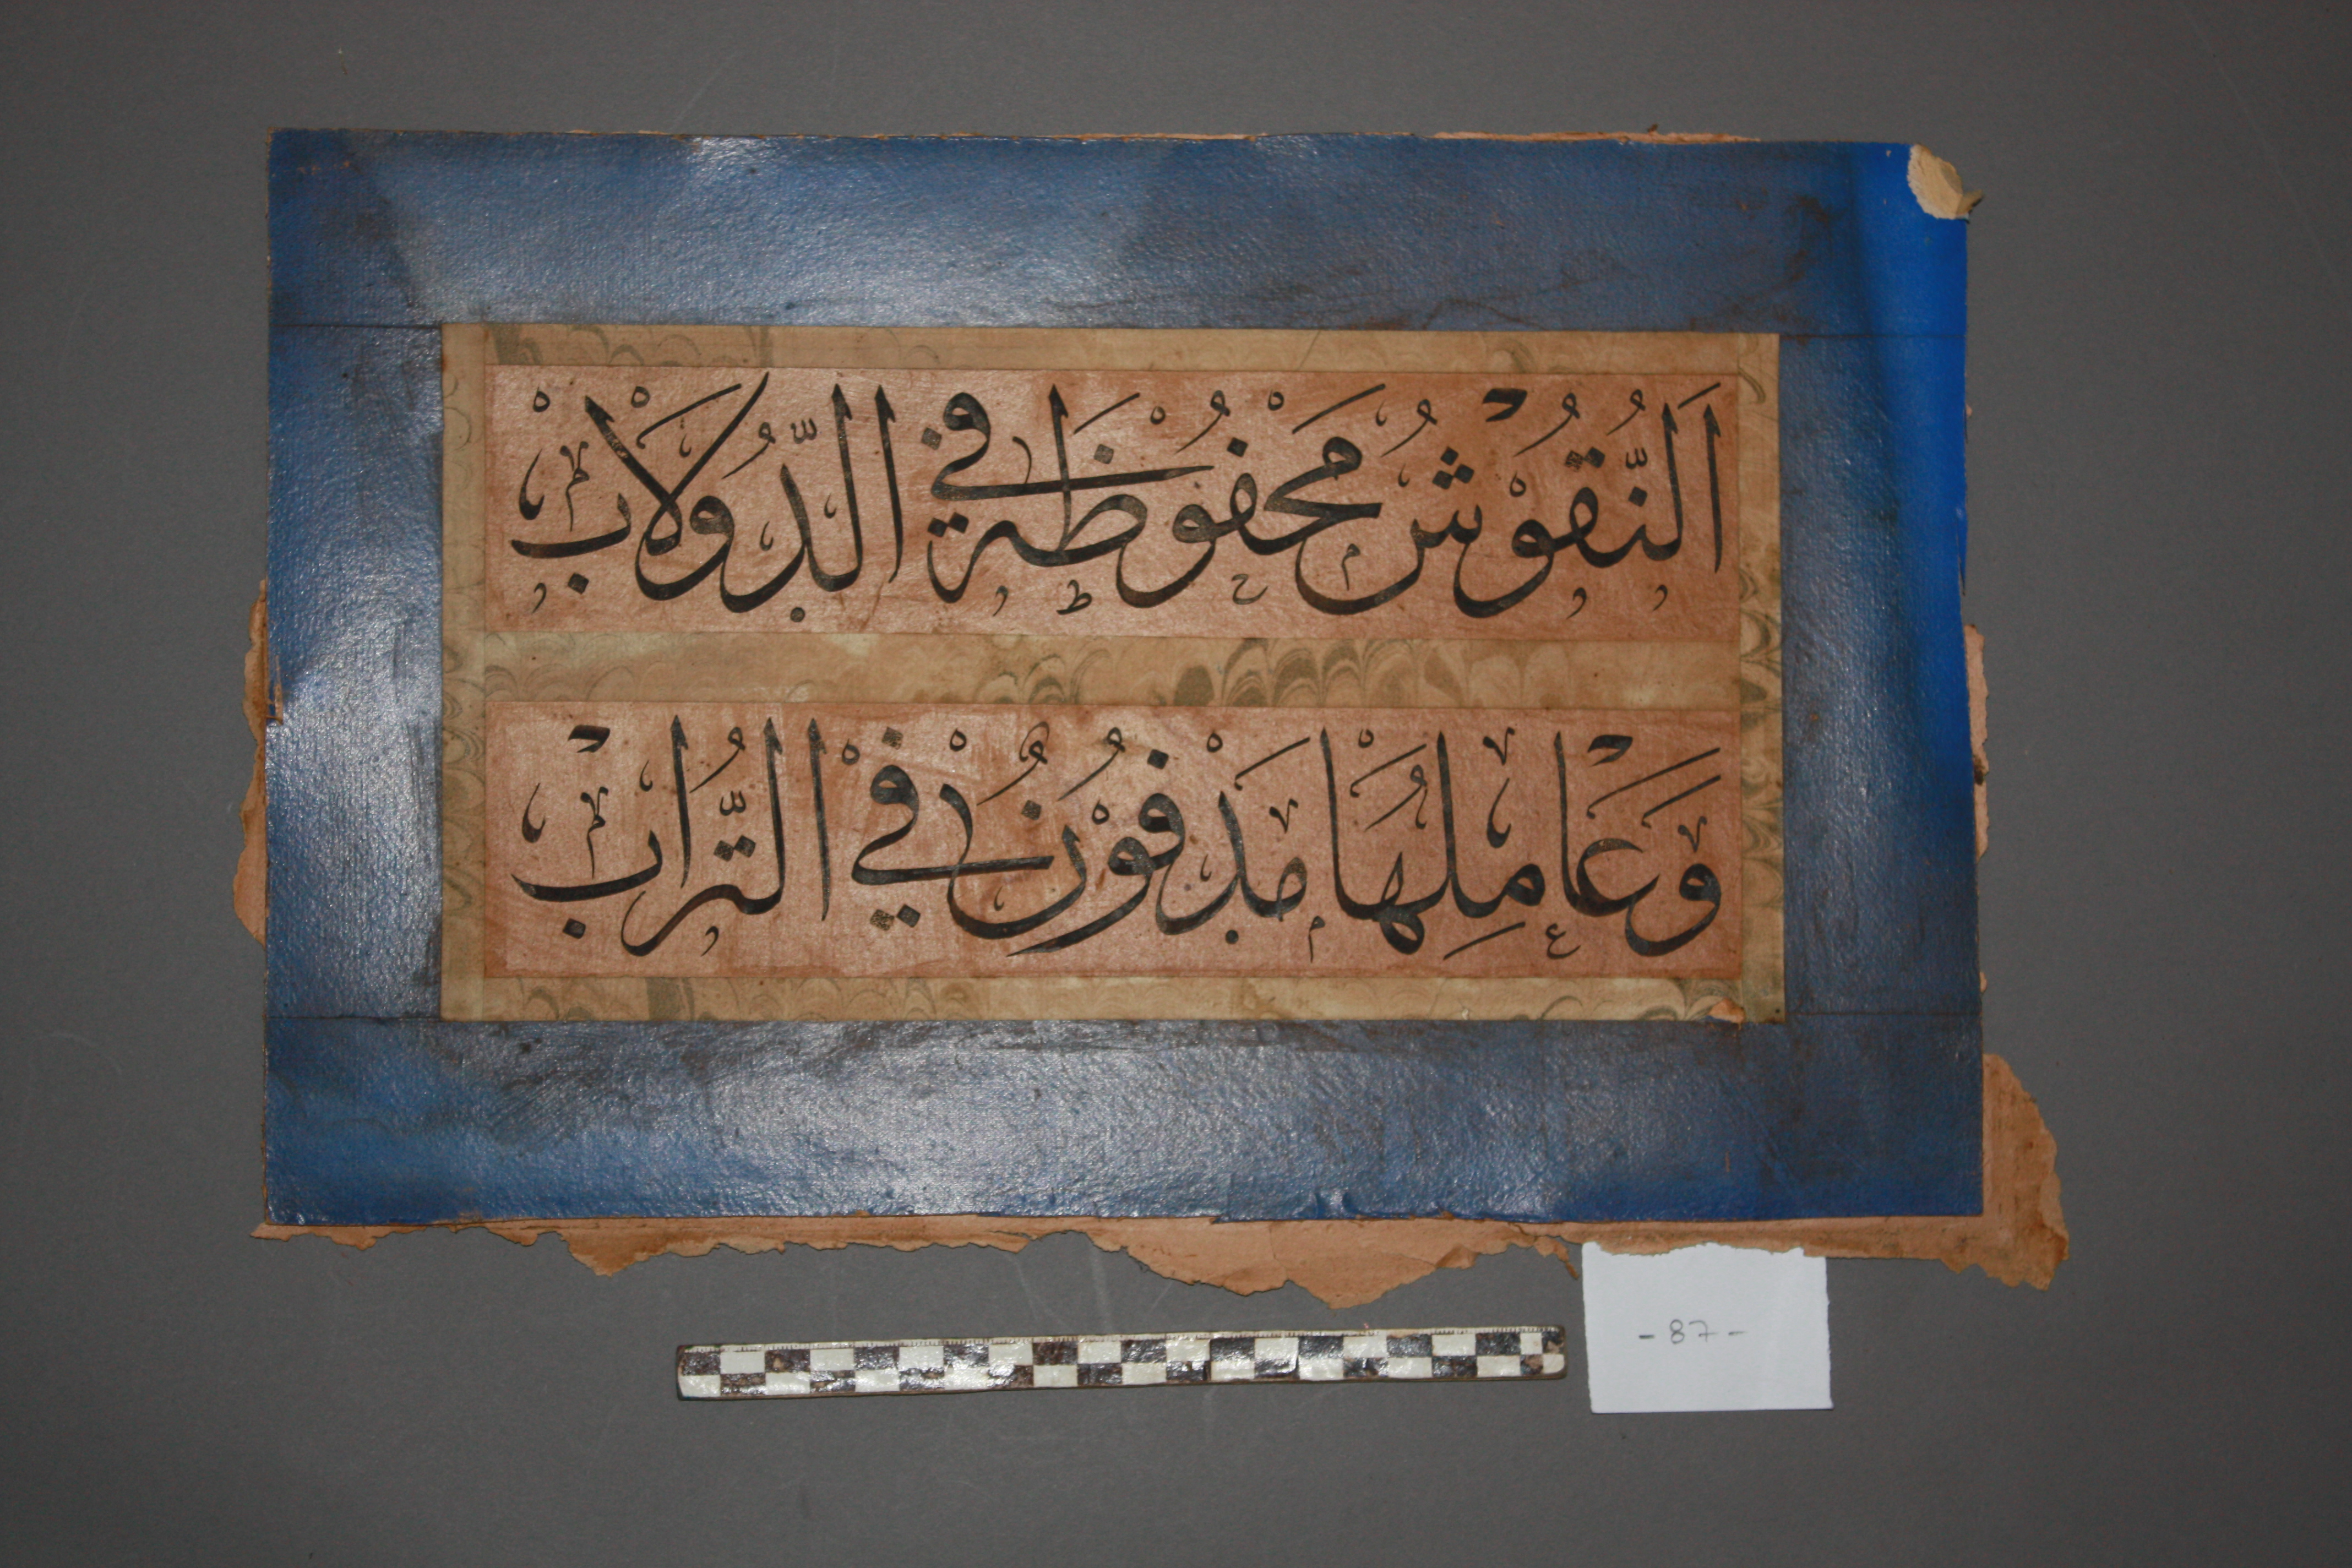 اَلنُّقُوْشُ مَحْفُوْظَة فِي الدُّوْلَابْ
وَعَامِلُهَا مَدْفُوْنٌ فِيْ التُّرَابْ
- 87 -